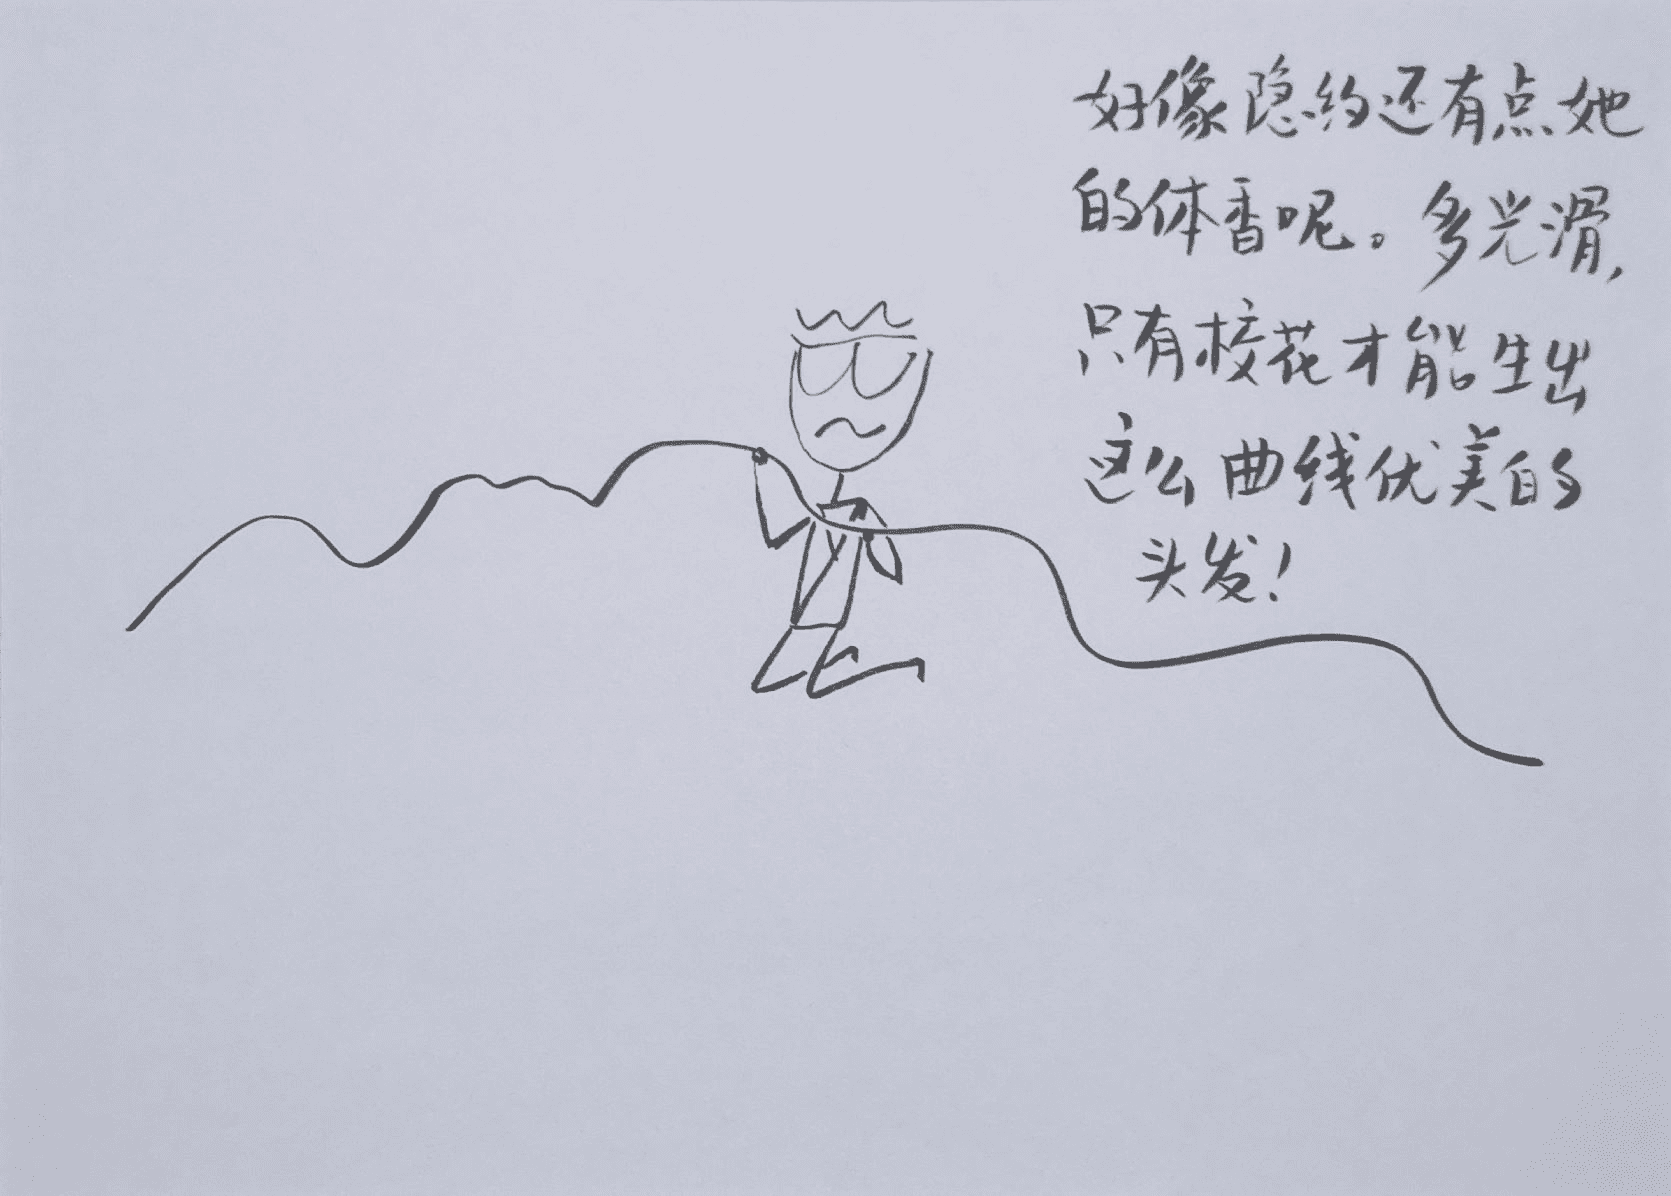 好像隐约还有点她
的体香呢。多光滑，
只有校花才能生出
这么曲线优美的
头发！